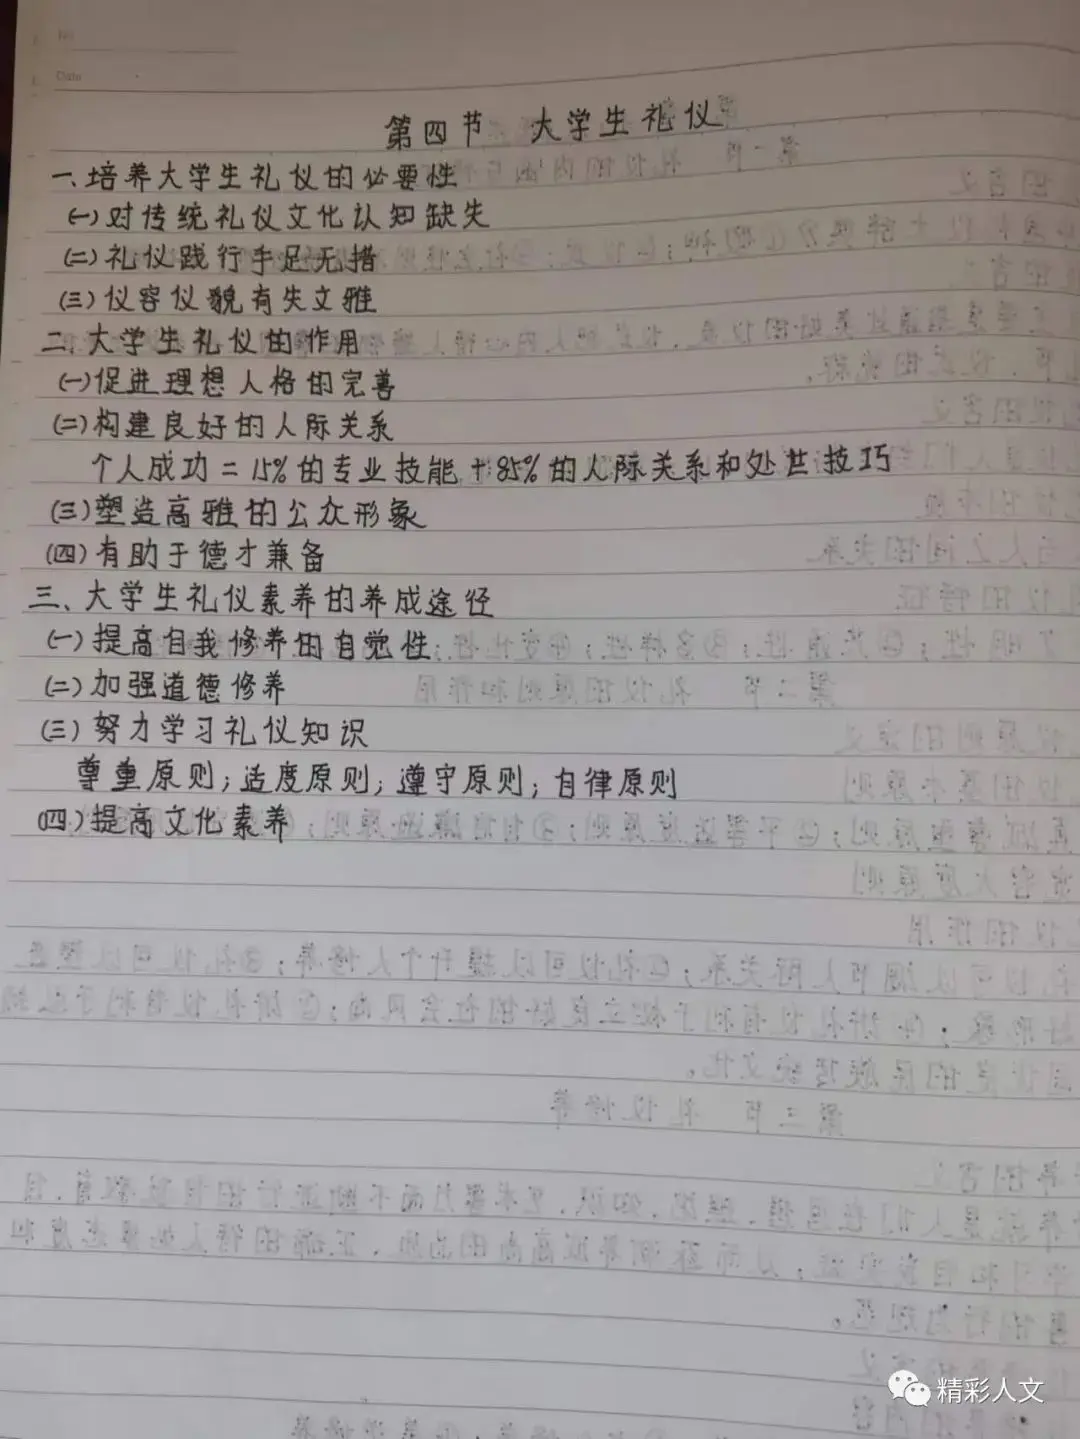 No
Date
第四节 大学生礼仪
一、培养大学生礼仪的必要性
(一)对传统礼仪文化认知缺失
(二)礼仪践行手足无措
(三)仪容仪貌有失文雅
二、大学生礼仪的作用
(一)促进理想人格的完善
(二)构建良好的人际关系
个人成功=15%的专业技能+85%的人际关系和处世技巧
(三)塑造高雅的公众形象
(四)有助于德才兼备
三、大学生礼仪素养的养成途径
(一)提高自我修养的自觉性
(二)加强道德修养
(三)努力学习礼仪知识
尊重原则;适度原则;遵守原则;自律原则
(四)提高文化素养
精彩人文